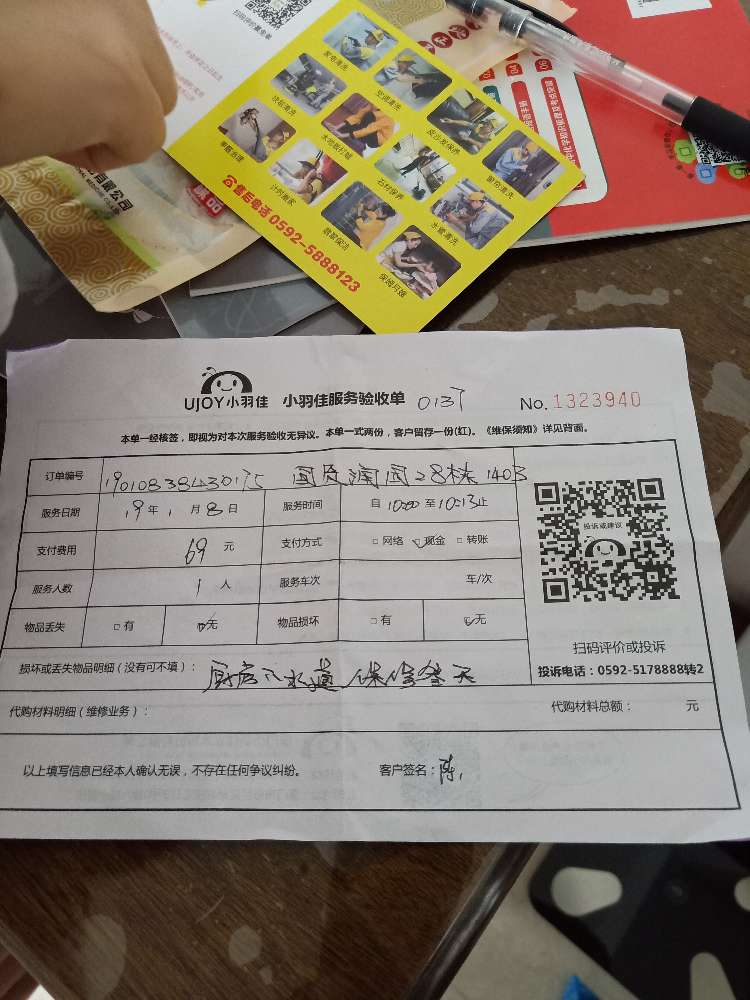 家电清洗
空调清洗
皮沙发保养
窗帘清洗
地毯清洗
木地板打蜡
石材保养
水管清洗
甲醛治理
计时清洁
驻家保洁
保姆月嫂
☎售后电话 0592-5888123
UJOY小羽佳 小羽佳服务验收单 No. 1323940
本单一经核签，即视为对本次服务验收无异议。本单一式两份，客户留存一份(红)。《维保须知》详见背面。
订单编号 28栋 1403
服务日期 19年 1月 8日 服务时间 自 10:00 至 10:13止
支付费用 69 元 支付方式 □网络 ☑现金 □转账
服务人数 1 人 服务车次 车/次
物品丢失 □有 ☑无 物品损坏 □有 ☑无
投诉或建议
扫码评价或投诉
投诉电话：0592-5178888转2
损坏或丢失物品明细（没有可不填）： 厨房下水道 保修叁天
代购材料明细（维修业务）： 代购材料总额： 元
以上填写信息已经本人确认无误，不存在任何争议纠纷。 客户签名：陈